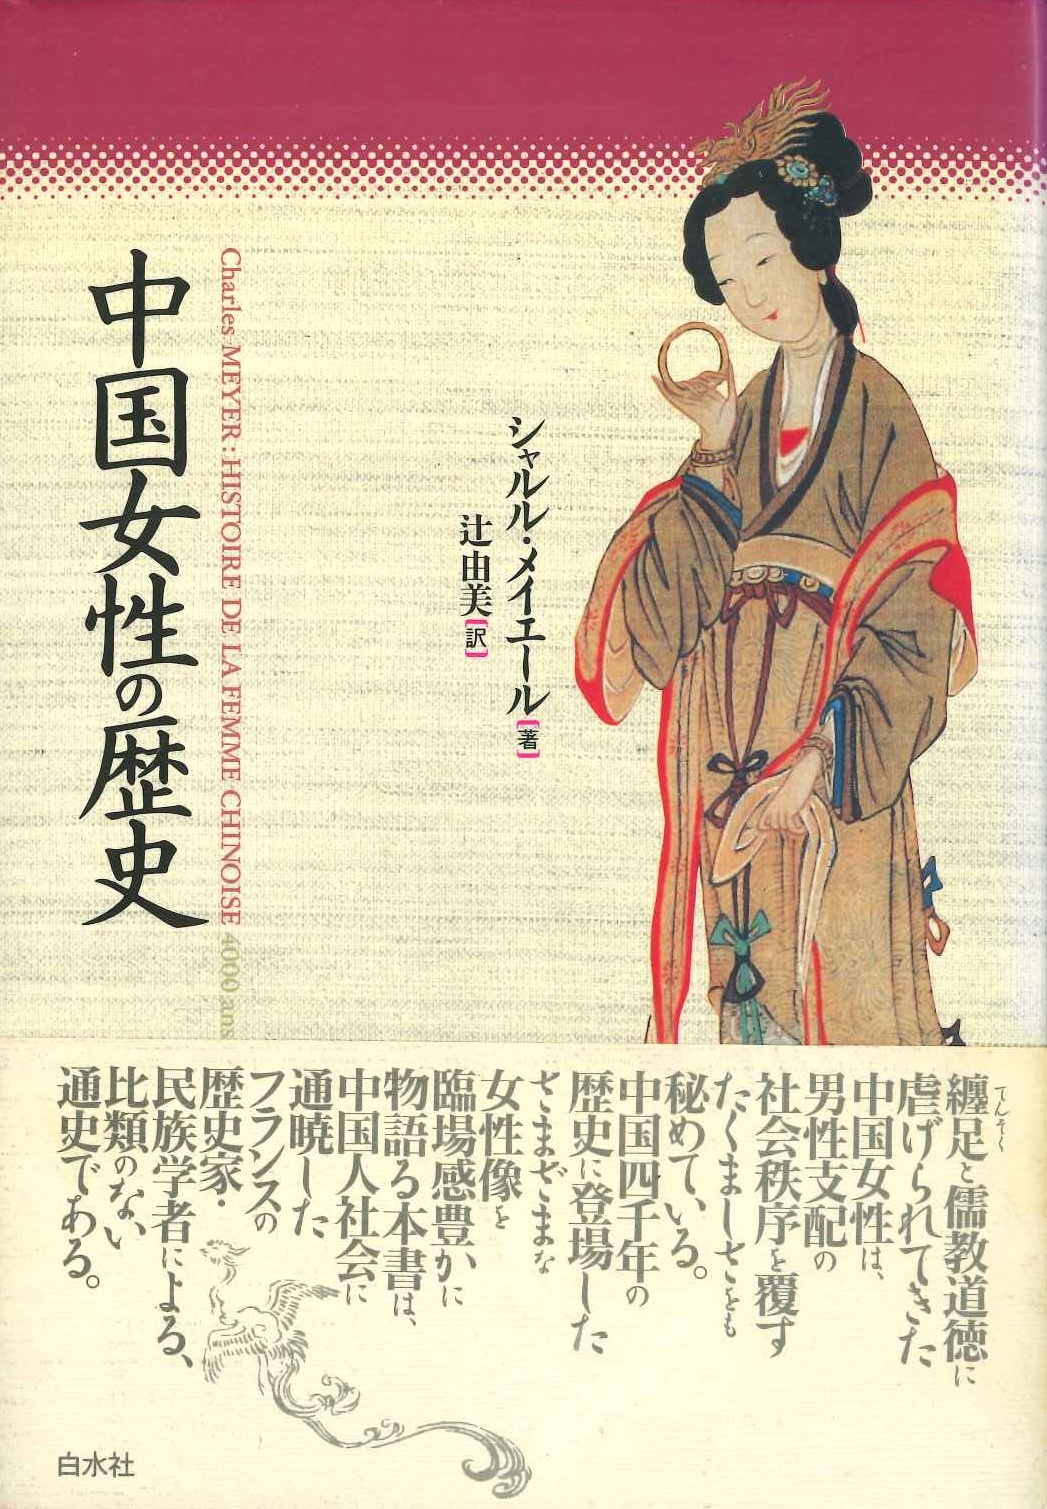 中国女性の歴史
Charles MEYER : HISTOIRE DE LA FEMME CHINOISE 4000 ans
シャルル・メイエール[著]
辻由美[訳]
てんそく
纏足と儒教道徳に
虐げられてきた
中国女性は、
男性支配の
社会秩序を覆す
たくましさをも
秘めている。
中国四千年の
歴史に登場した
さまざまな
女性像を
臨場感豊かに
物語る本書は、
中国人社会に
通暁した
フランスの
歴史家・
民族学者による、
比類のない
通史である。
白水社